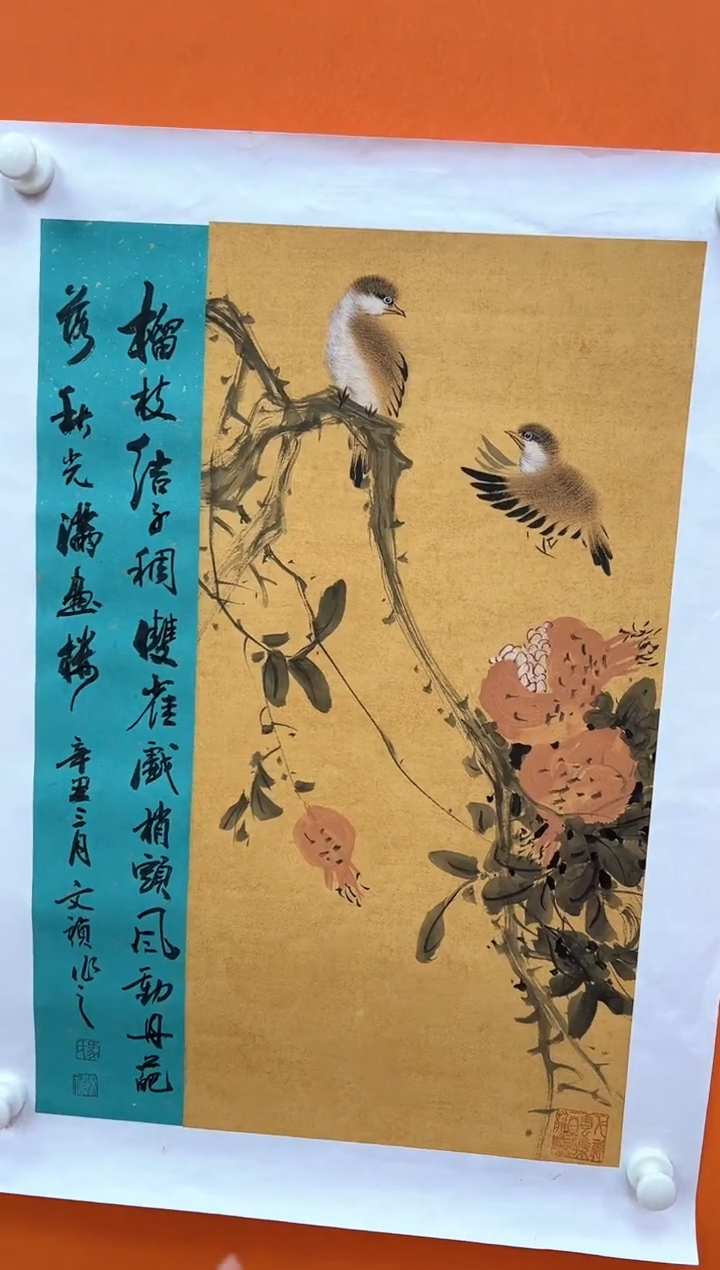 榴枝結子稠雙雀戲梢頭風動丹葩
落秋光滿畫樓辛丑三月文禎作之